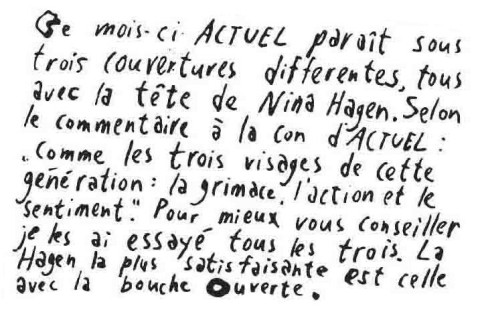 Ce mois-ci ACTUEL paraît sous
trois couvertures differentes, tous
avec la tête de Nina Hagen. Selon
le commentaire à la con d'ACTUEL :
"Comme les trois visages de cette
génération : la grimace, l'action et le
sentiment." Pour mieux vous conseiller
je les ai essayé tous les trois. La
Hagen la plus satisfaisante est celle
avec la bouche ouverte.